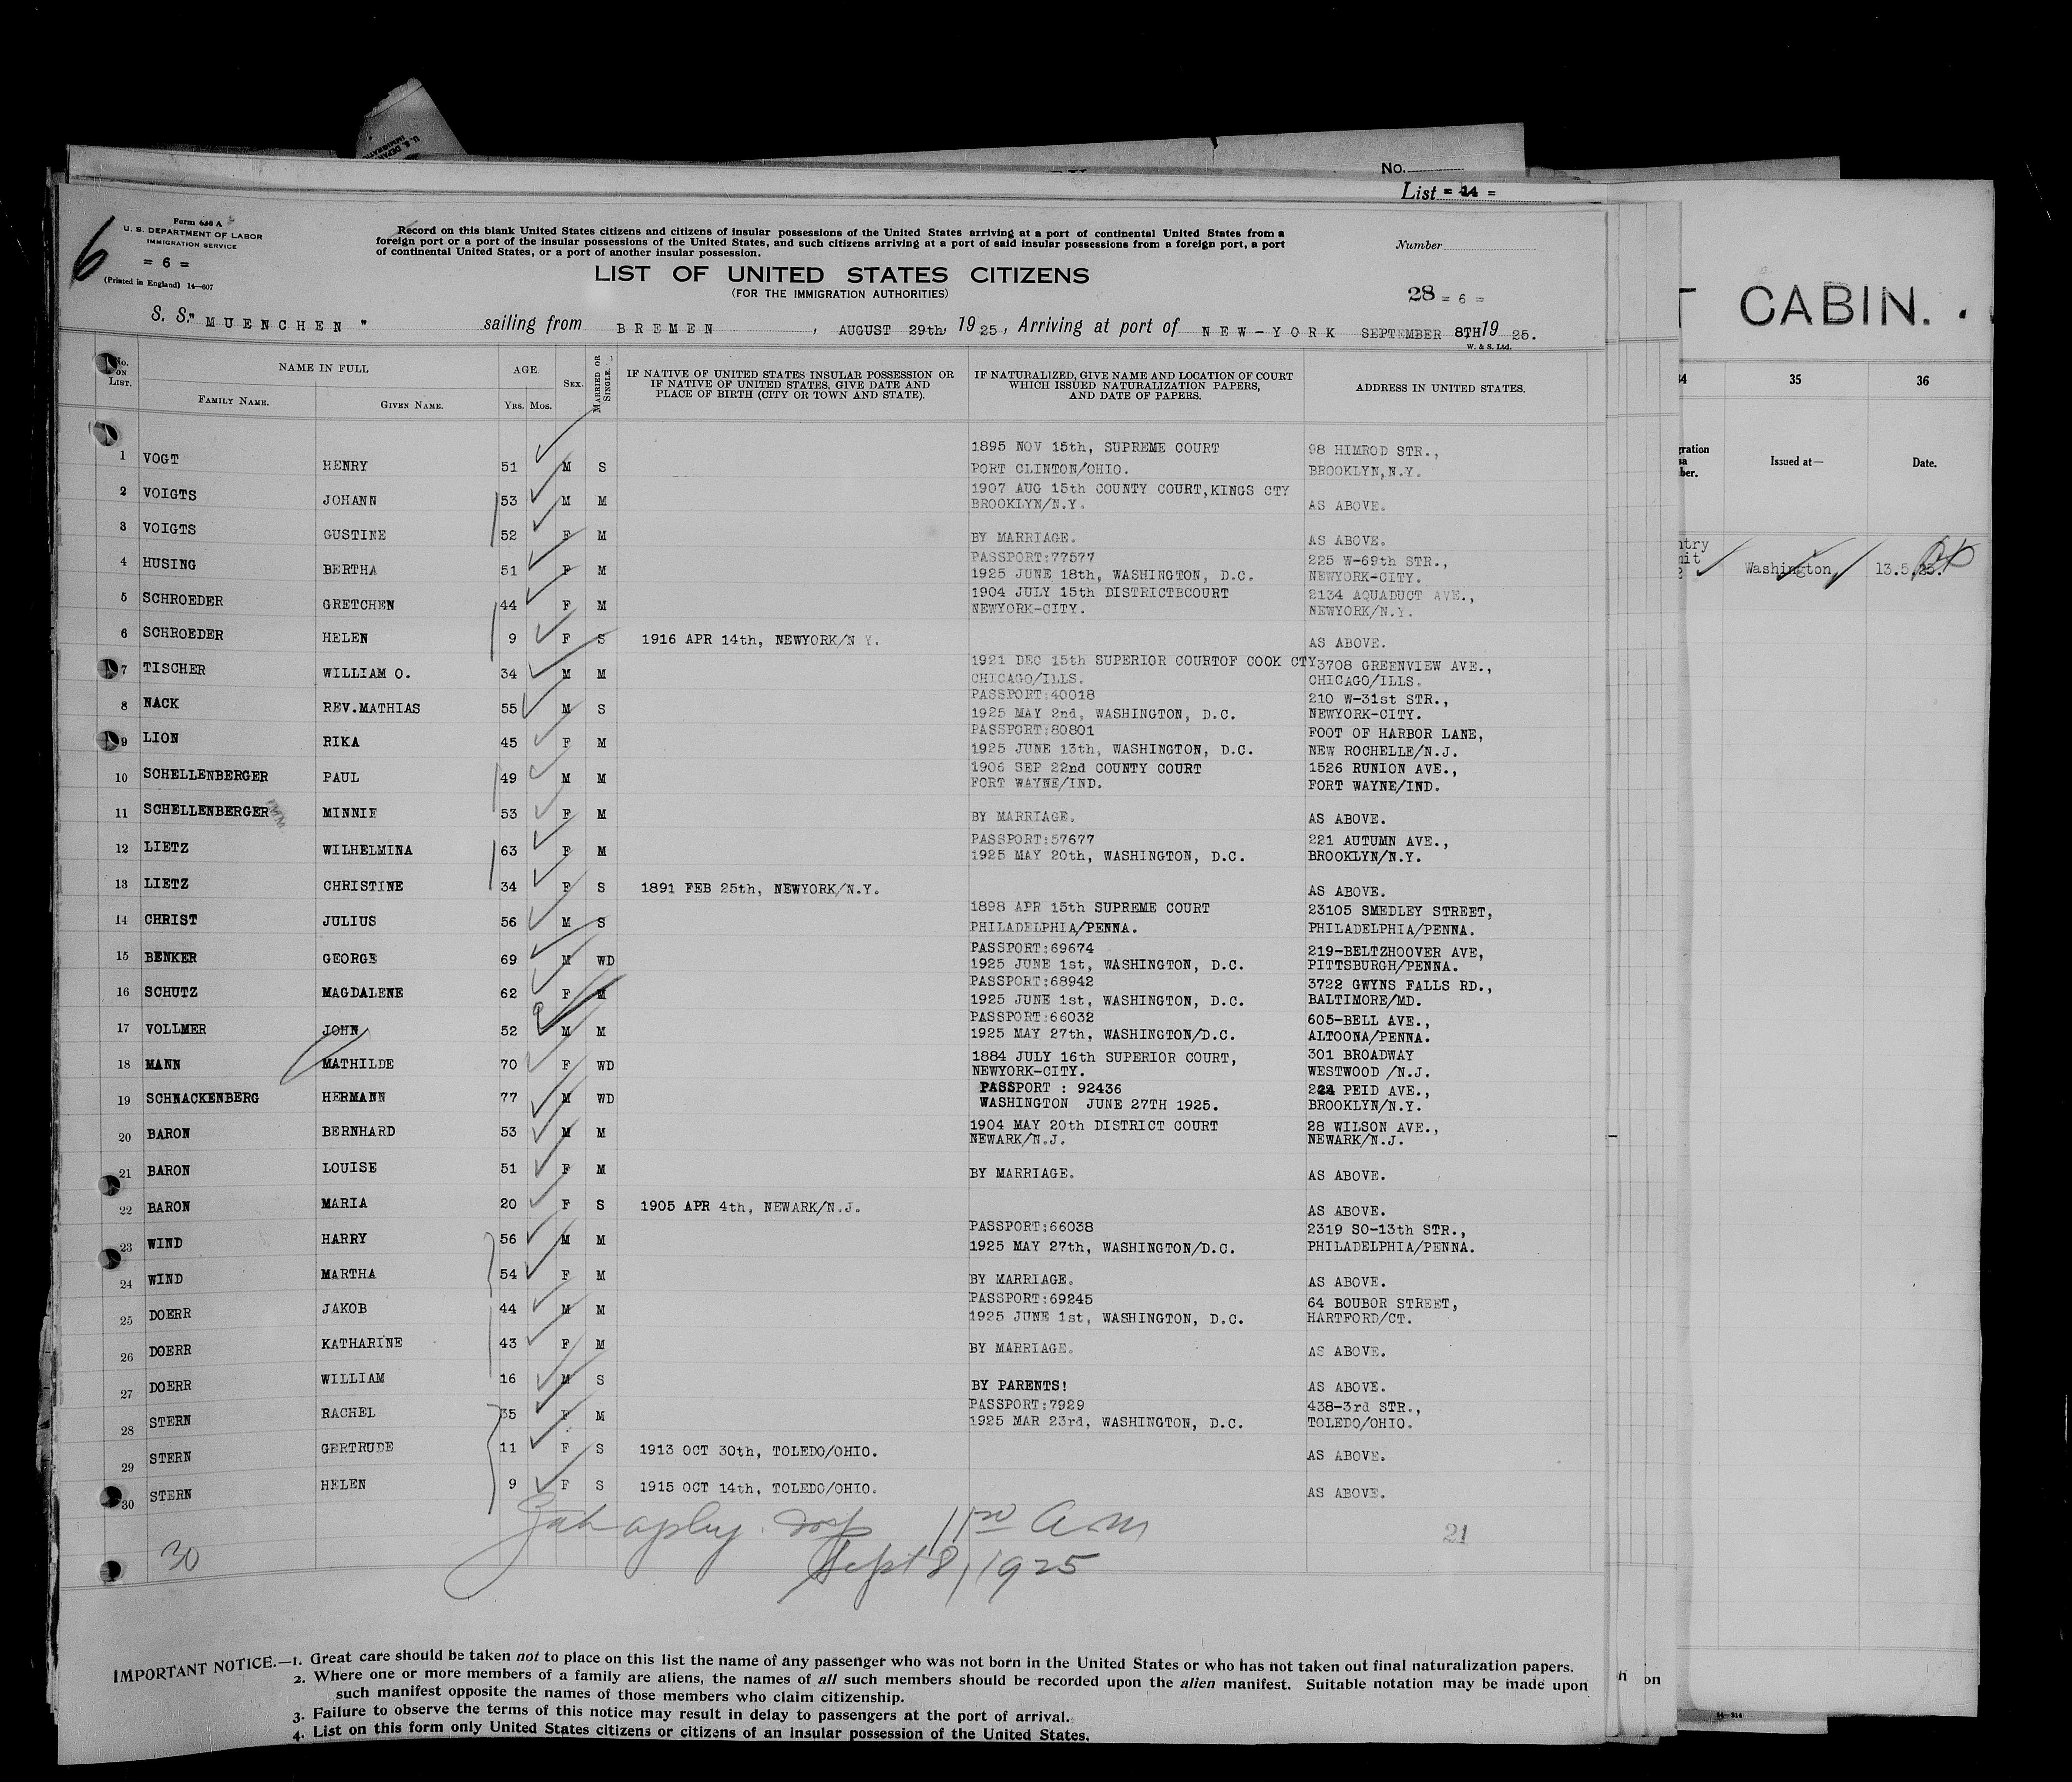 No.
List = 14 =
6
Form 630 A
U. S. DEPARTMENT OF LABOR
IMMIGRATION SERVICE
= 6 =
(Printed in England) 14—607
Record on this blank United States citizens and citizens of insular possessions of the United States arriving at a port of continental United States from a
foreign port or a port of the insular possessions of the United States, and such citizens arriving at a port of said insular possessions from a foreign port, a port
of continental United States, or a port of another insular possession.
Number
LIST OF UNITED STATES CITIZENS
(FOR THE IMMIGRATION AUTHORITIES)
28 = 6 =
S. S." MUENCHEN " sailing from BREMEN, AUGUST 29th, 1925, Arriving at port of NEW-YORK SEPTEMBER 8TH 1925.
W. & S. Ltd.
No. on List. NAME IN FULL AGE. Sex. Married or Single. IF NATIVE OF UNITED STATES INSULAR POSSESSION OR IF NATIVE OF UNITED STATES, GIVE DATE AND PLACE OF BIRTH (CITY OR TOWN AND STATE). IF NATURALIZED, GIVE NAME AND LOCATION OF COURT WHICH ISSUED NATURALIZATION PAPERS, AND DATE OF PAPERS. ADDRESS IN UNITED STATES.
Family Name. Given Name. Yrs. Mos.
1895 NOV 15th, SUPREME COURT 98 HIMROD STR.,
1 VOGT HENRY 51 M S PORT CLINTON/OHIO. BROOKLYN,N.Y.
1907 AUG 15th COUNTY COURT,KINGS CTY
2 VOIGTS JOHANN 53 M M BROOKLYN/N.Y. AS ABOVE.
3 VOIGTS GUSTINE 52 F M BY MARRIAGE. AS ABOVE.
PASSPORT:77577 225 W-69th STR.,
4 HUSING BERTHA 51 F M 1925 JUNE 18th, WASHINGTON, D.C. NEWYORK-CITY.
1904 JULY 15th DISTRICTBCOURT 2134 AQUADUCT AVE.,
5 SCHROEDER GRETCHEN 44 F M NEWYORK-CITY. NEWYORK/N.Y.
6 SCHROEDER HELEN 9 F S 1916 APR 14th, NEWYORK/N Y. AS ABOVE.
1921 DEC 15th SUPERIOR COURTOF COOK CTY 3708 GREENVIEW AVE.,
7 TISCHER WILLIAM O. 34 M M CHICAGO/ILLS. CHICAGO/ILLS.
PASSPORT:40018 210 W-31st STR.,
8 NACK REV.MATHIAS 55 M S 1925 MAY 2nd, WASHINGTON, D.C. NEWYORK-CITY.
PASSPORT:80801 FOOT OF HARBOR LANE,
9 LION RIKA 45 F M 1925 JUNE 13th, WASHINGTON, D.C. NEW ROCHELLE/N.J.
1906 SEP 22nd COUNTY COURT 1526 RUNION AVE.,
10 SCHELLENBERGER PAUL 49 M M FORT WAYNE/IND. FORT WAYNE/IND.
11 SCHELLENBERGER MINNIE 53 F M BY MARRIAGE. AS ABOVE.
PASSPORT:57677 221 AUTUMN AVE.,
12 LIETZ WILHELMINA 63 F M 1925 MAY 20th, WASHINGTON, D.C. BROOKLYN/N.Y.
13 LIETZ CHRISTINE 34 F S 1891 FEB 25th, NEWYORK/N.Y. AS ABOVE.
1898 APR 15th SUPREME COURT 23105 SMEDLEY STREET,
14 CHRIST JULIUS 56 M S PHILADELPHIA/PENNA. PHILADELPHIA/PENNA.
PASSPORT:69674 219-BELTZHOOVER AVE,
15 BENKER GEORGE 69 M WD 1925 JUNE 1st, WASHINGTON, D.C. PITTSBURGH/PENNA.
PASSPORT:68942 3722 GWYNS FALLS RD.,
16 SCHUTZ MAGDALENE 62 F M 1925 JUNE 1st, WASHINGTON, D.C. BALTIMORE/MD.
PASSPORT:66032 605-BELL AVE.,
17 VOLLMER JOHN 52 M M 1925 MAY 27th, WASHINGTON/D.C. ALTOONA/PENNA.
1884 JULY 16th SUPERIOR COURT, 301 BROADWAY
18 MANN MATHILDE 70 F WD NEWYORK-CITY. WESTWOOD /N.J.
PASSPORT : 92436 PEID AVE.,
19 SCHNACKENBERG HERMANN 77 M WD WASHINGTON JUNE 27TH 1925. BROOKLYN/N.Y.
1904 MAY 20th DISTRICT COURT 28 WILSON AVE.,
20 BARON BERNHARD 53 M M NEWARK/N.J. NEWARK/N.J.
21 BARON LOUISE 51 F M BY MARRIAGE. AS ABOVE.
22 BARON MARIA 20 F S 1905 APR 4th, NEWARK/N.J. AS ABOVE.
PASSPORT:66038 2319 SO-13th STR.,
23 WIND HARRY 56 M M 1925 MAY 27th, WASHINGTON/D.C. PHILADELPHIA/PENNA.
24 WIND MARTHA 54 F M BY MARRIAGE. AS ABOVE.
PASSPORT:69245 64 BOUBOR STREET,
25 DOERR JAKOB 44 M M 1925 JUNE 1st, WASHINGTON, D.C. HARTFORD/CT.
26 DOERR KATHARINE 43 F M BY MARRIAGE. AS ABOVE.
27 DOERR WILLIAM 16 M S BY PARENTS! AS ABOVE.
PASSPORT:7929 438-3rd STR.,
28 STERN RACHEL 35 F M 1925 MAR 23rd, WASHINGTON, D.C. TOLEDO/OHIO.
29 STERN GERTRUDE 11 F S 1913 OCT 30th, TOLEDO/OHIO. AS ABOVE.
30 STERN HELEN 9 F S 1915 OCT 14th, TOLEDO/OHIO. AS ABOVE.
11 A M 21
30 Sept 8, 1925
IMPORTANT NOTICE.—1. Great care should be taken not to place on this list the name of any passenger who was not born in the United States or who has not taken out final naturalization papers.
2. Where one or more members of a family are aliens, the names of all such members should be recorded upon the alien manifest. Suitable notation may be made upon
such manifest opposite the names of those members who claim citizenship.
3. Failure to observe the terms of this notice may result in delay to passengers at the port of arrival.
4. List on this form only United States citizens or citizens of an insular possession of the United States.
T CABIN.
34 35 36
Issued at— Date.
Washington 13.5.25.
on
14—214